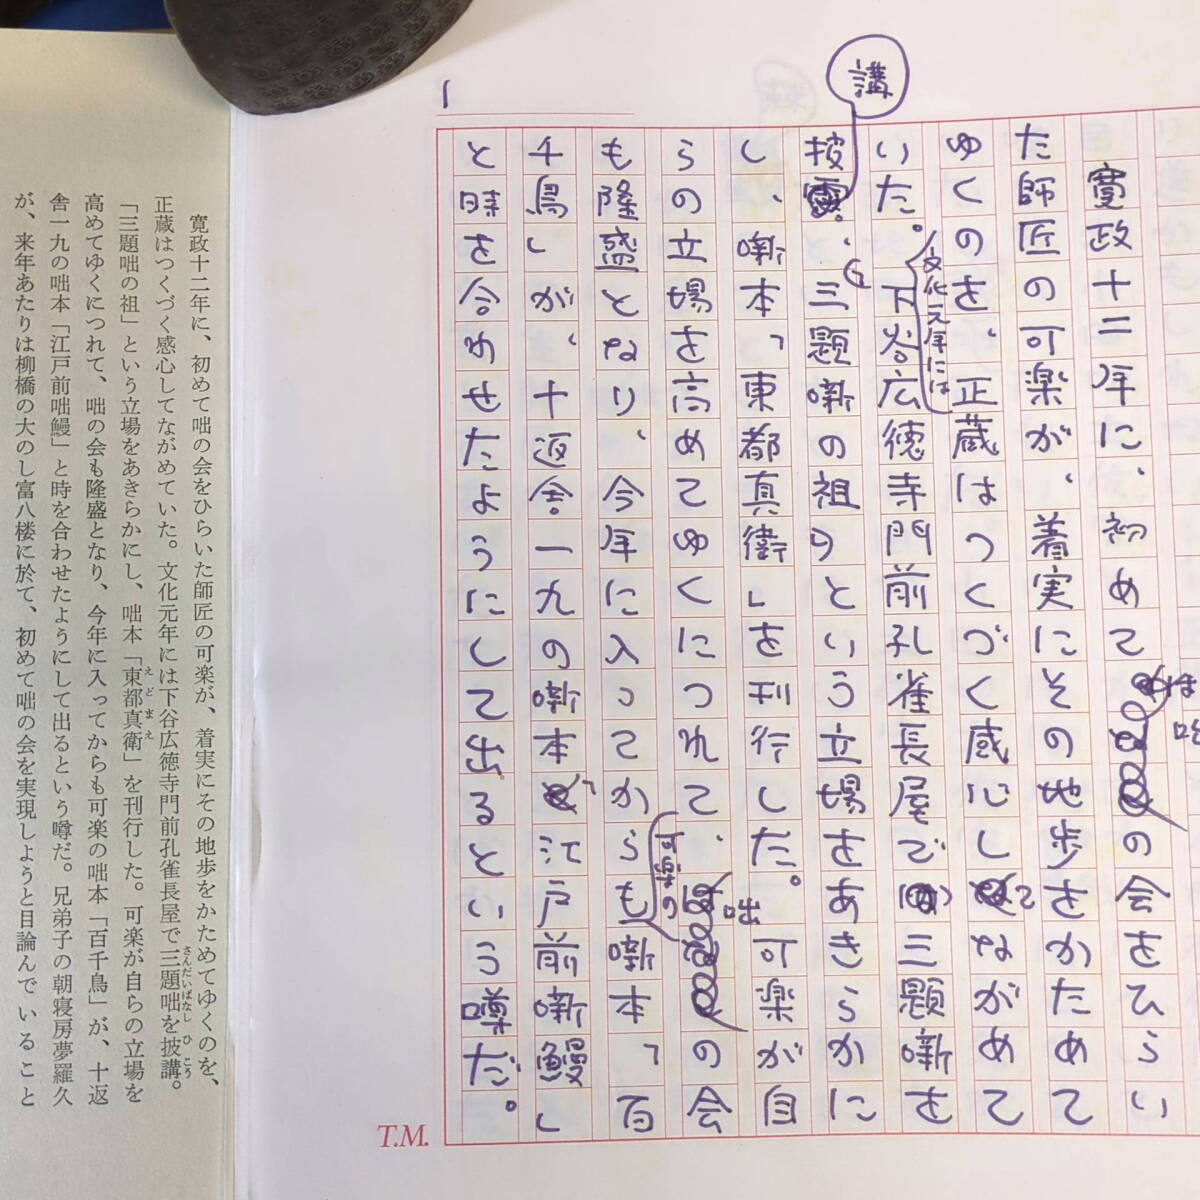 講
寛政十二年に、初めて咄の会をひらい
た師匠の可楽が、着実にその地歩をかためて
ゆくのを、正蔵はつくづく感心してながめて
いた。文化元年には下谷広徳寺門前孔雀長屋で三題噺を
披
三題噺の祖」という立場をあきらかに
し、噺本「東都真衛」を刊行した。可楽が自
らの立場を高めてゆくにつれて、咄の会
も隆盛となり、今年に入ってからも可楽の噺本「百
千鳥」が、十返舎一九の噺本「江戸前噺鰻」
と時を合わせたようにして出るという噂だ。
1
T.M.
寛政十二年に、初めて咄の会をひらいた師匠の可楽が、着実にその地歩をかためてゆくのを、
正蔵はつくづく感心してながめていた。文化元年には下谷広徳寺門前孔雀長屋で三題咄を披講。
さんだいばなし ひこう
「三題咄の祖」という立場をあきらかにし、咄本「東都真衛」を刊行した。可楽が自らの立場を
えどまえ
高めてゆくにつれて、咄の会も隆盛となり、今年に入ってからも可楽の咄本「百千鳥」が、十返
舎一九の咄本「江戸前咄鰻」と時を合わせたようにして出るという噂だ。兄弟子の朝寝房夢羅久
が、来年あたりは柳橋の大のし富八楼に於て、初めて咄の会を実現しようと目論んでいること